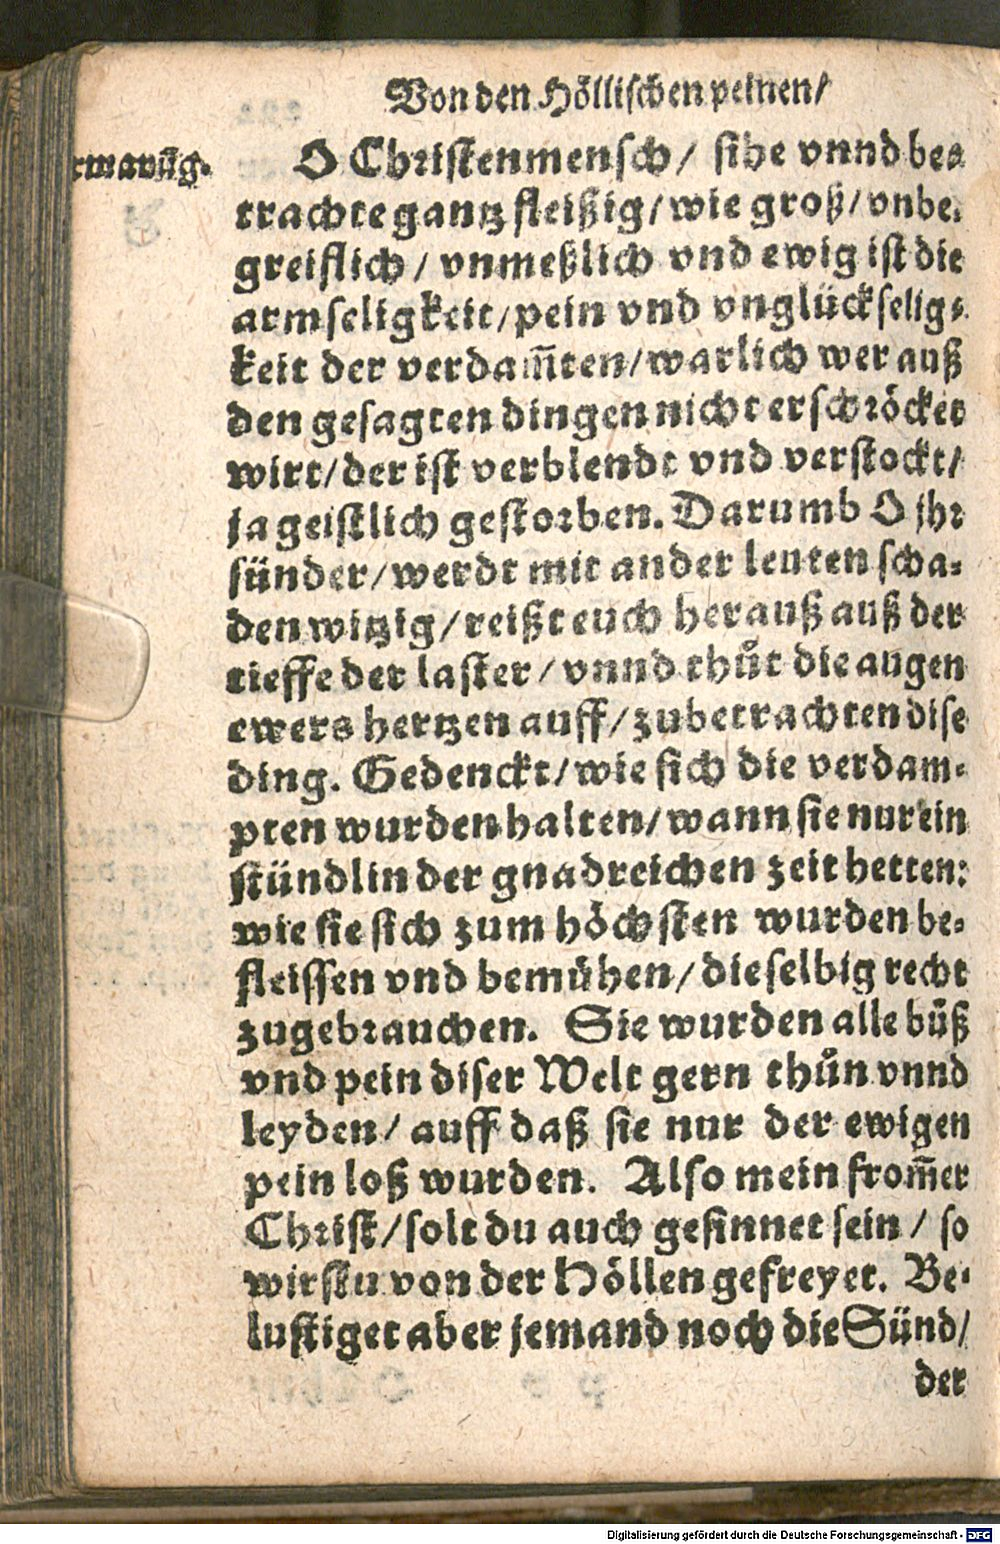 Von den Höllischen peinen/
rwarnũg.
O Christenmensch/ sihe vnnd be⸗
trachte gantz fleißig/wie groß/vnbe⸗
greiflich/ vnmeßlich vnd ewig ist die
armseligkeit/pein vnd vnglückselig⸗
keit der verdam̃ten/warlich wer auß
den gesagten dingen nicht erschröcket
wirt/der ist verblendt vnd verstockt/
ja geistlich gestorben. Darumb O jhr
sünder/werdt mit ander leuten scha⸗
den witzig/reißt euch herauß auß der
tieffe der laster/vnnd thůt die augen
ewers hertzen auff/zubetrachten dise
ding. Gedenckt/wie sich die verdam⸗
pten wurden halten/wann sie nur ein
stündlin der gnadreichen zeit hetten:
wie sie sich zum höchsten wurden be⸗
fleissen vnd bemühen/dieselbig recht
zugebrauchen. Sie wurden alle bůß
vnd pein diser Welt gern thůn vnnd
leyden/ auff daß sie nur der ewigen
pein loß wurden. Also mein from̃er
Christ/solt du auch gesinnet sein/ so
wirstu von der Höllen gefreyet. Be⸗
lustiget aber jemand noch die Sünd/
der
Digitalisierung gefördert durch die Deutsche Forschungsgemeinschaft - DFG